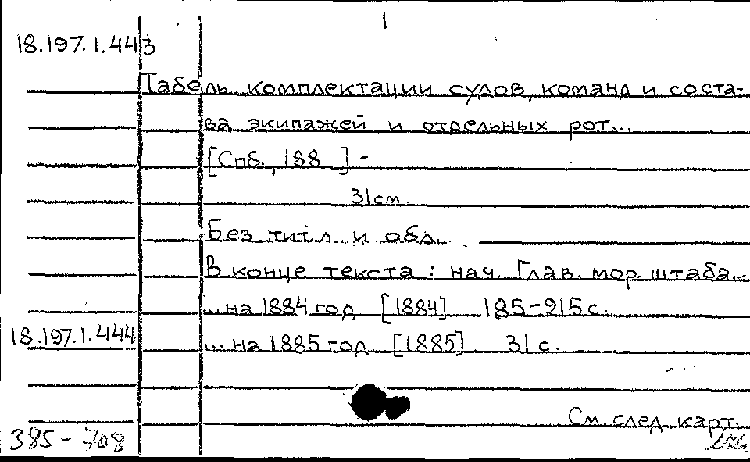 1
18.197.1.443
Табель комплектации судов, команд и соста-
ва экипажей и отдельных рот...
[Спб., 188 ] -
31см.
Без тит. л. и обл.
В конце текста: нач. Глав. мор. штаба...
...на 1884 год [1884] 185-215 с.
18.197.1.444 ...на 1885 год [1885]. 31 с.
См. след. карт.
385 -